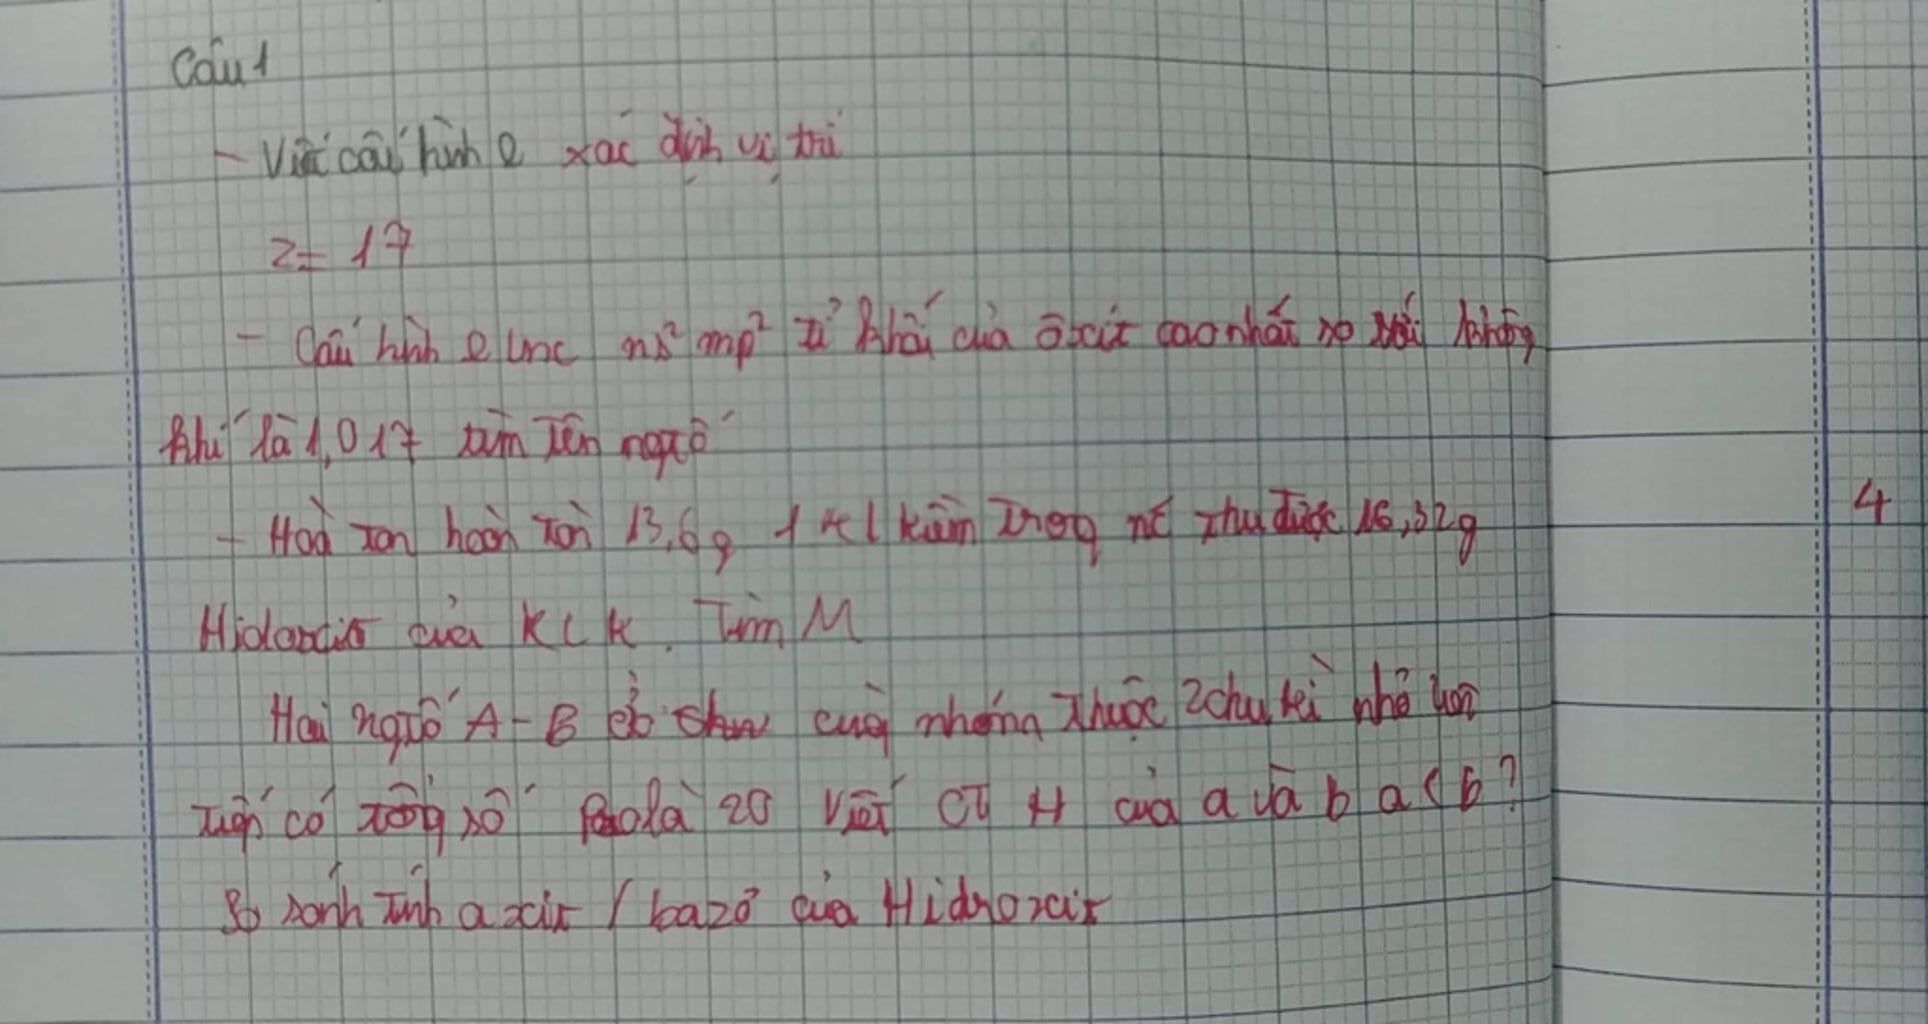 Câu 1
- Viết cấu hình e xác định vị trí
Z = 17
- Cấu hình e lnc ns² mp² tỉ khối của ôxit cao nhất so với không
khí là 1,017 tìm tên ngtố
- Hoà tan hoàn toàn 13,6g 1 KL kiềm trong nc thu được 16,32g
của KLK. Tìm M
Hai ngtố A-B cùng nhóm thuộc 2 chu kì nhỏ liên
tiếp có tổng số là 20 viết CT H của a và b a < b?
So sánh tính axit / bazơ của Hidroxit
4